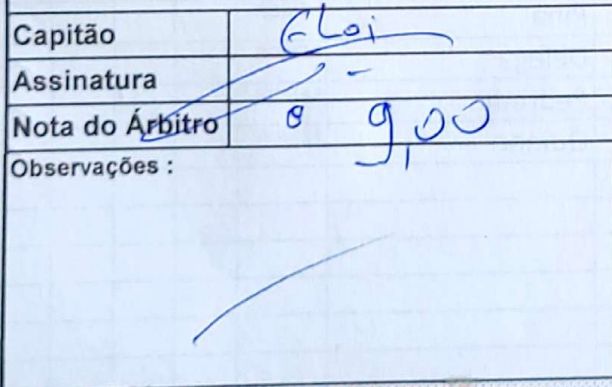 Capitão Eloi
Assinatura
Nota do Árbitro 9,00
Observações :